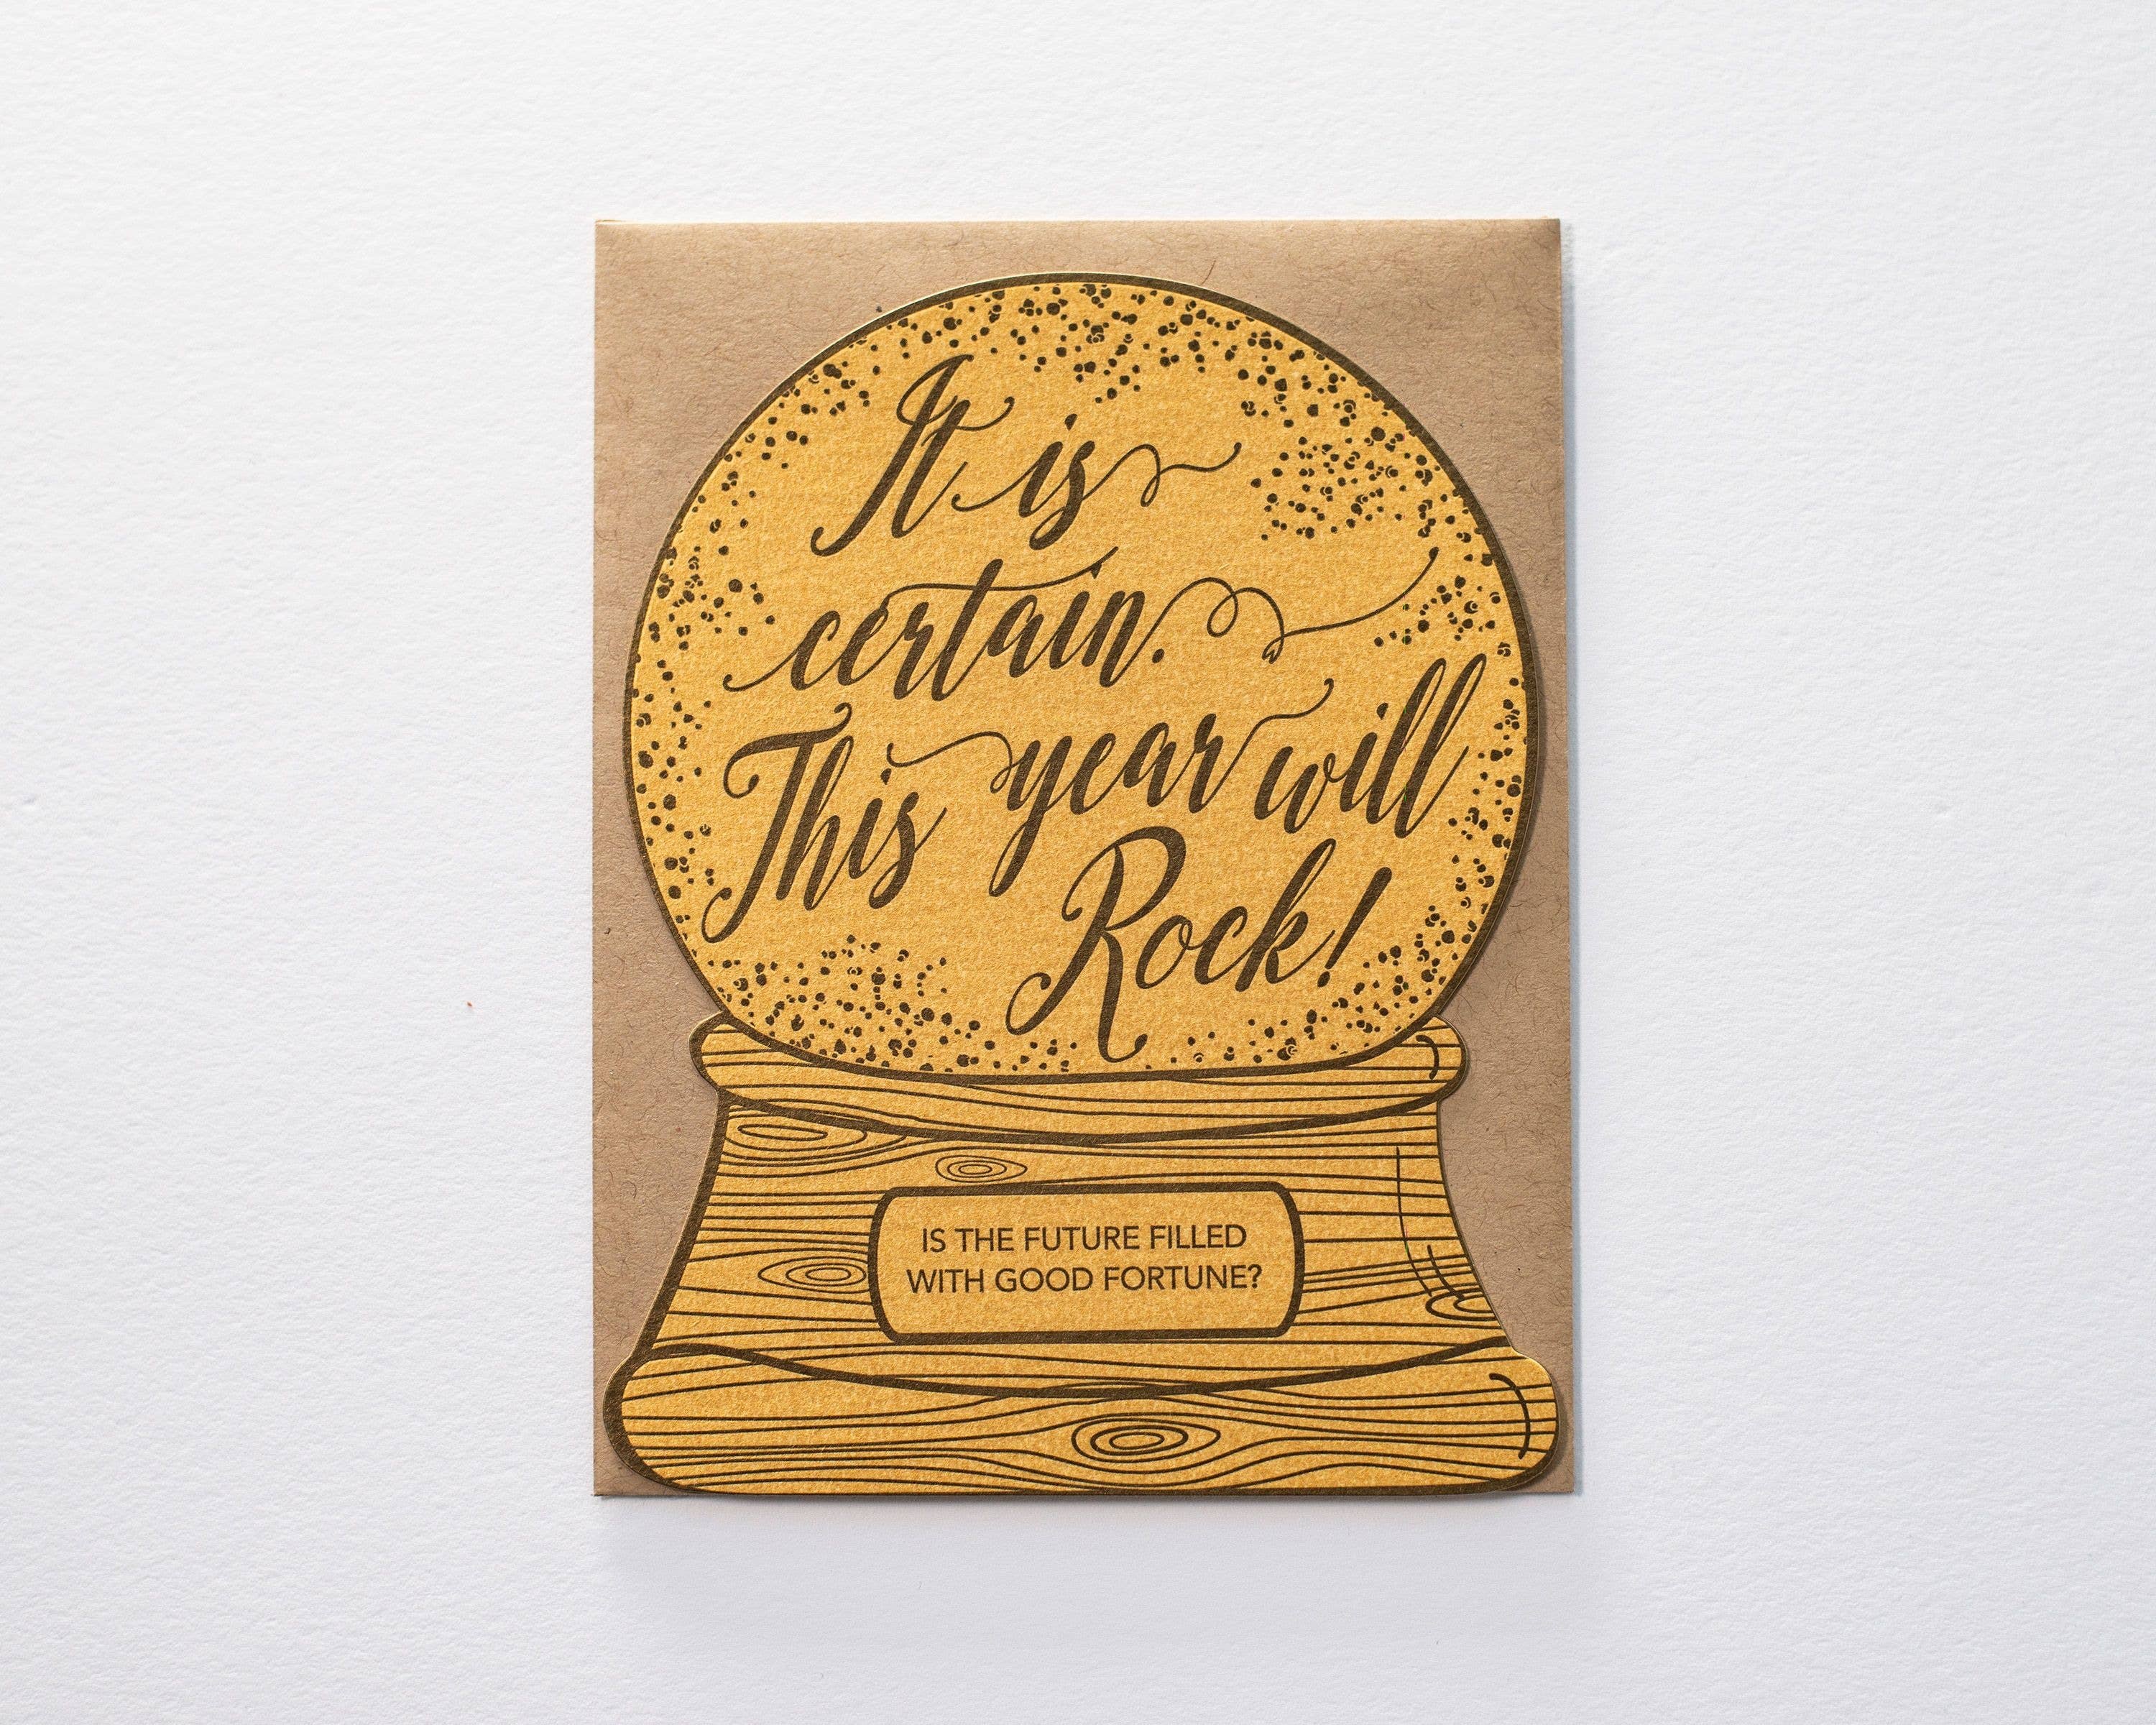 It is
certain.
This year will
Rock!
IS THE FUTURE FILLED
WITH GOOD FORTUNE?